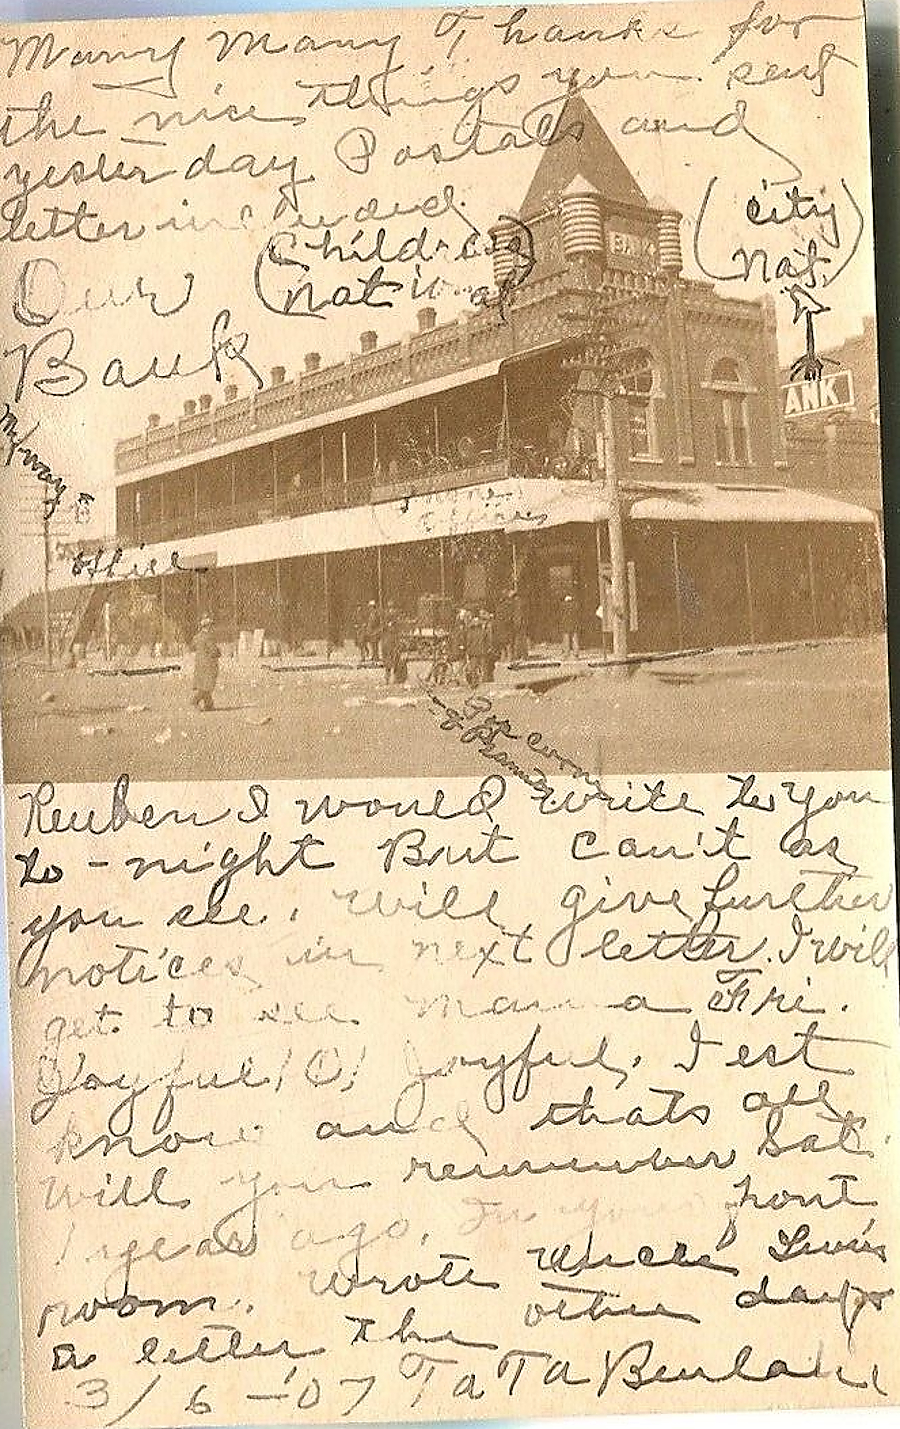 Many many Thanks for
the nice things you sent
yesterday Postals and
letter included
Our (Childress National)
Bank
(City Nat.)
BANK
ANK
My way to
office
Phone
Offices
Gip Corn
of
Reuben I would write to you
to-night But can't as
you see. Will give further
notices in next letter. I will
get to see mama Fri.
Joyful! O! Joyful. Jest
know and thats all
Will you remember Sat.
1 year ago. In your front
room. Wrote Uncle Lewis
a letter the other day
3/6-'07 Ta Ta Beulah